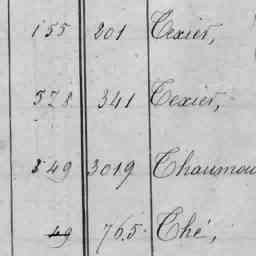 155 201 Texier,
528 341 Texier,
549 3019 Thaumou
49 765 Thé,